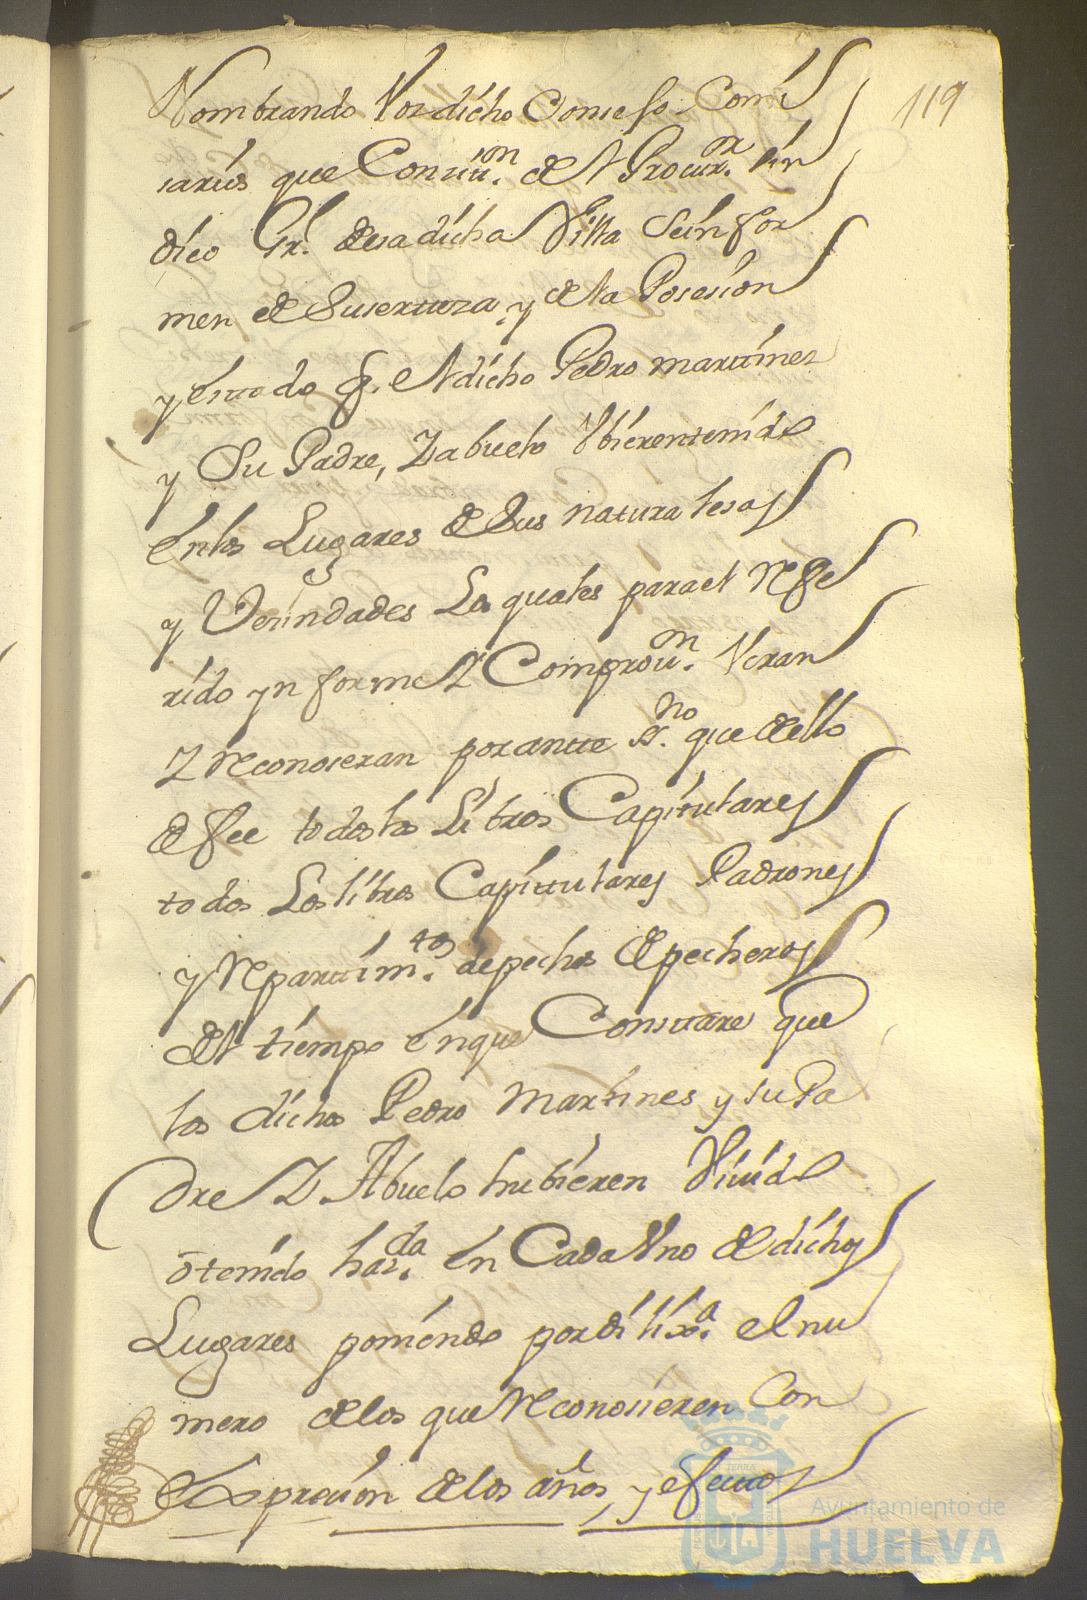 119
Nombrando Por dicho Consejo Comi
sarios que Con zitt.on del Procur.or sin
dico Gr.l desa dicha Villa se informen
men de Su sertteza, y de la Posesion
y estado q. el dicho Pedro marttinez
y Su Padre, Y abuelo Ubieren tenido
en los Lugares de Sus naturalesas
y Vecindades Los quales para el Refe
rido ynforme Y Comprou.on Veran
Y Reconoseran por antte ss.no que de ello
de fee todos los Libros Capitulares
todos Los libros Capittulares Padrones
y Reparttim.tos de pechos de pecheros
del tiempo en que Constare que
los dichos Pedro Martines y su Pa
dre Y Abuelo hubieren Viuido
o tenido haz.da en Cada Uno de dichos
Lugares poniendo por dilix.a el nu
mero de los que Reconosieren Con
Expresion de los años, y efectos
Ayuntamiento de
HUELVA